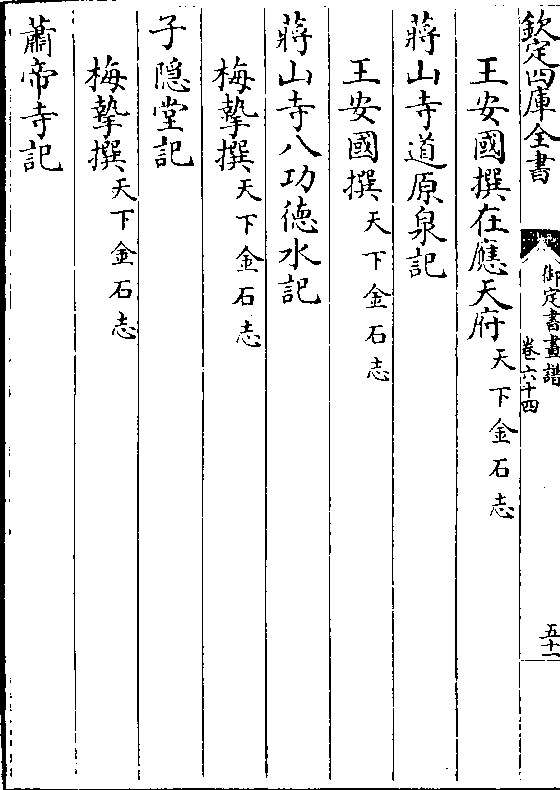 欽定四庫全書
御定書畫譜
卷六十四
五十一
王安國撰在應天府天下金石志
蔣山寺道原泉記
王安國撰天下金石志
蔣山寺八功徳水記
梅摯撰天下金石志
子隠堂記
梅摯撰天下金石志
蕭帝寺記